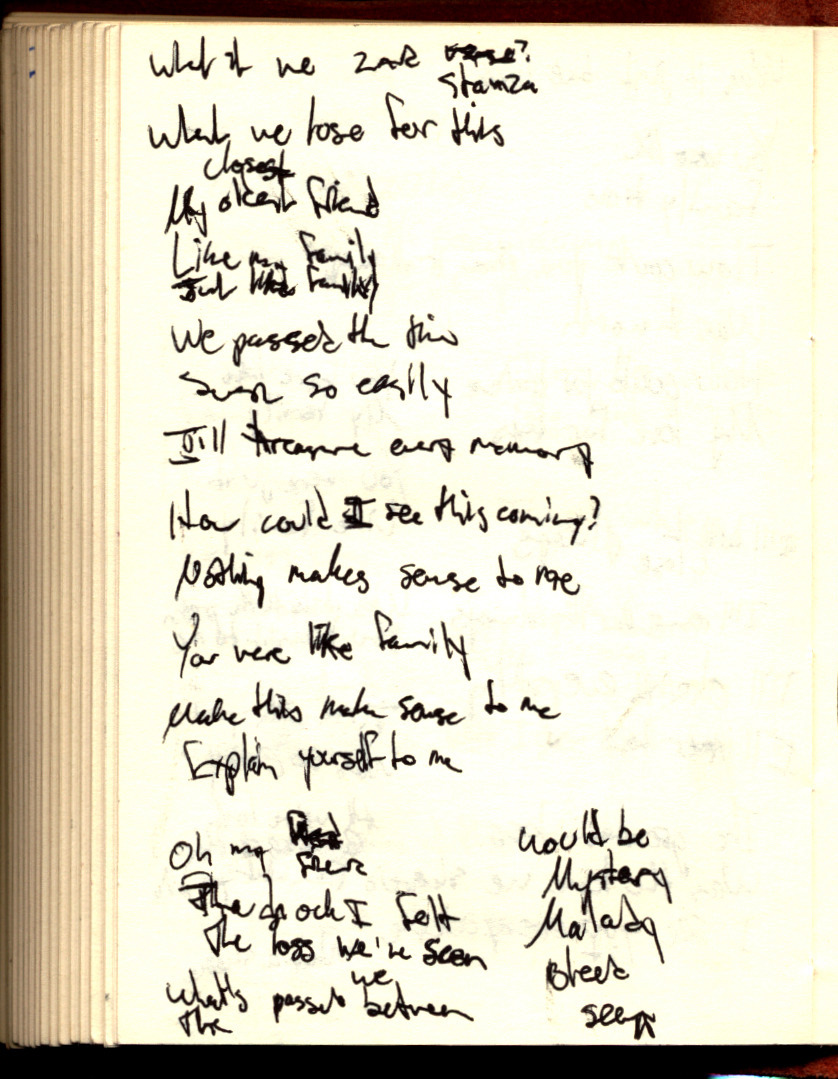 What if we 2nd verse?
stanza
What we lose for this
closest
My oldest friend
Like my family
Just like family
We passed the time
so easily
I'll treasure every memory
How could I see this coming?
Nothing makes sense to me
You were like family
Make this make sense to me
Explain yourself to me
Oh my
The shock I felt
The loss we've seen
we
What's passed between
The
would be
Mystery
Malady
Bleed
seen